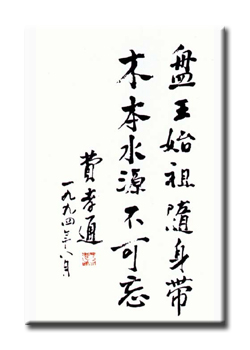 盤王始祖隨身帶
木本水源不可忘
費孝通
一九九四年八月